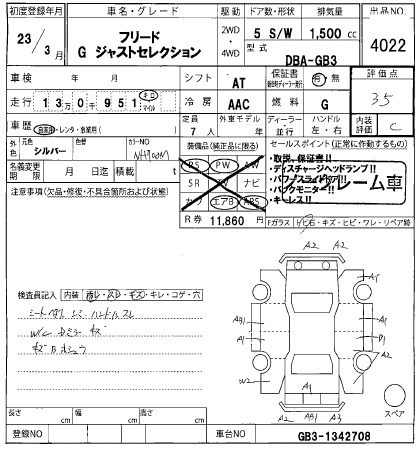 初度登録年月 車名・グレード 駆動 ドア数・形状 排気量 出品NO
23/3月 フリード G ジャストセレクション 2WD・4WD 5 S/W 1,500 cc 4022
型式 DBA-GB3
車検 年 月 シフト AT 保証書 有・無 評価点
走行 13万0千951 キロ マイル 冷房 AAC 燃料 G 3.5
車歴 自家用・レンタ・事業用( ) 定員 7人 外車モデル 年 ディーラー・並行 ハンドル 左・右 内装評価 C
外色 元色 シルバー 色替 カラーNO NH700M
装備品(純正品に限る) セールスポイント(正常に作動するもの)
名義変更期限 月 日迄 積載 t
PS PW AW
SR エアコン ナビ
カワ エアB ABS
・取説、保証書!!
・ディスチャージヘッドランプ!!
・パワースライドドア!!
・バックモニター!!
・キーレス!!
ーム車
注意事項(欠品・修復・不具合箇所および状態)
R券 11,860 円
Fガラス ・キズ・ヒビ・ワレ・リペア跡
検査員記入 内装 汚レ・スレ・キズ・キレ・コゲ・穴
シート汚れ シミ ハンドルスレ
A2
A2
A1
A1
W2
A1
A2
A2
AB1
A3
スペア
長さ cm 幅 cm 高さ cm
登録NO 車台NO GB3-1342708